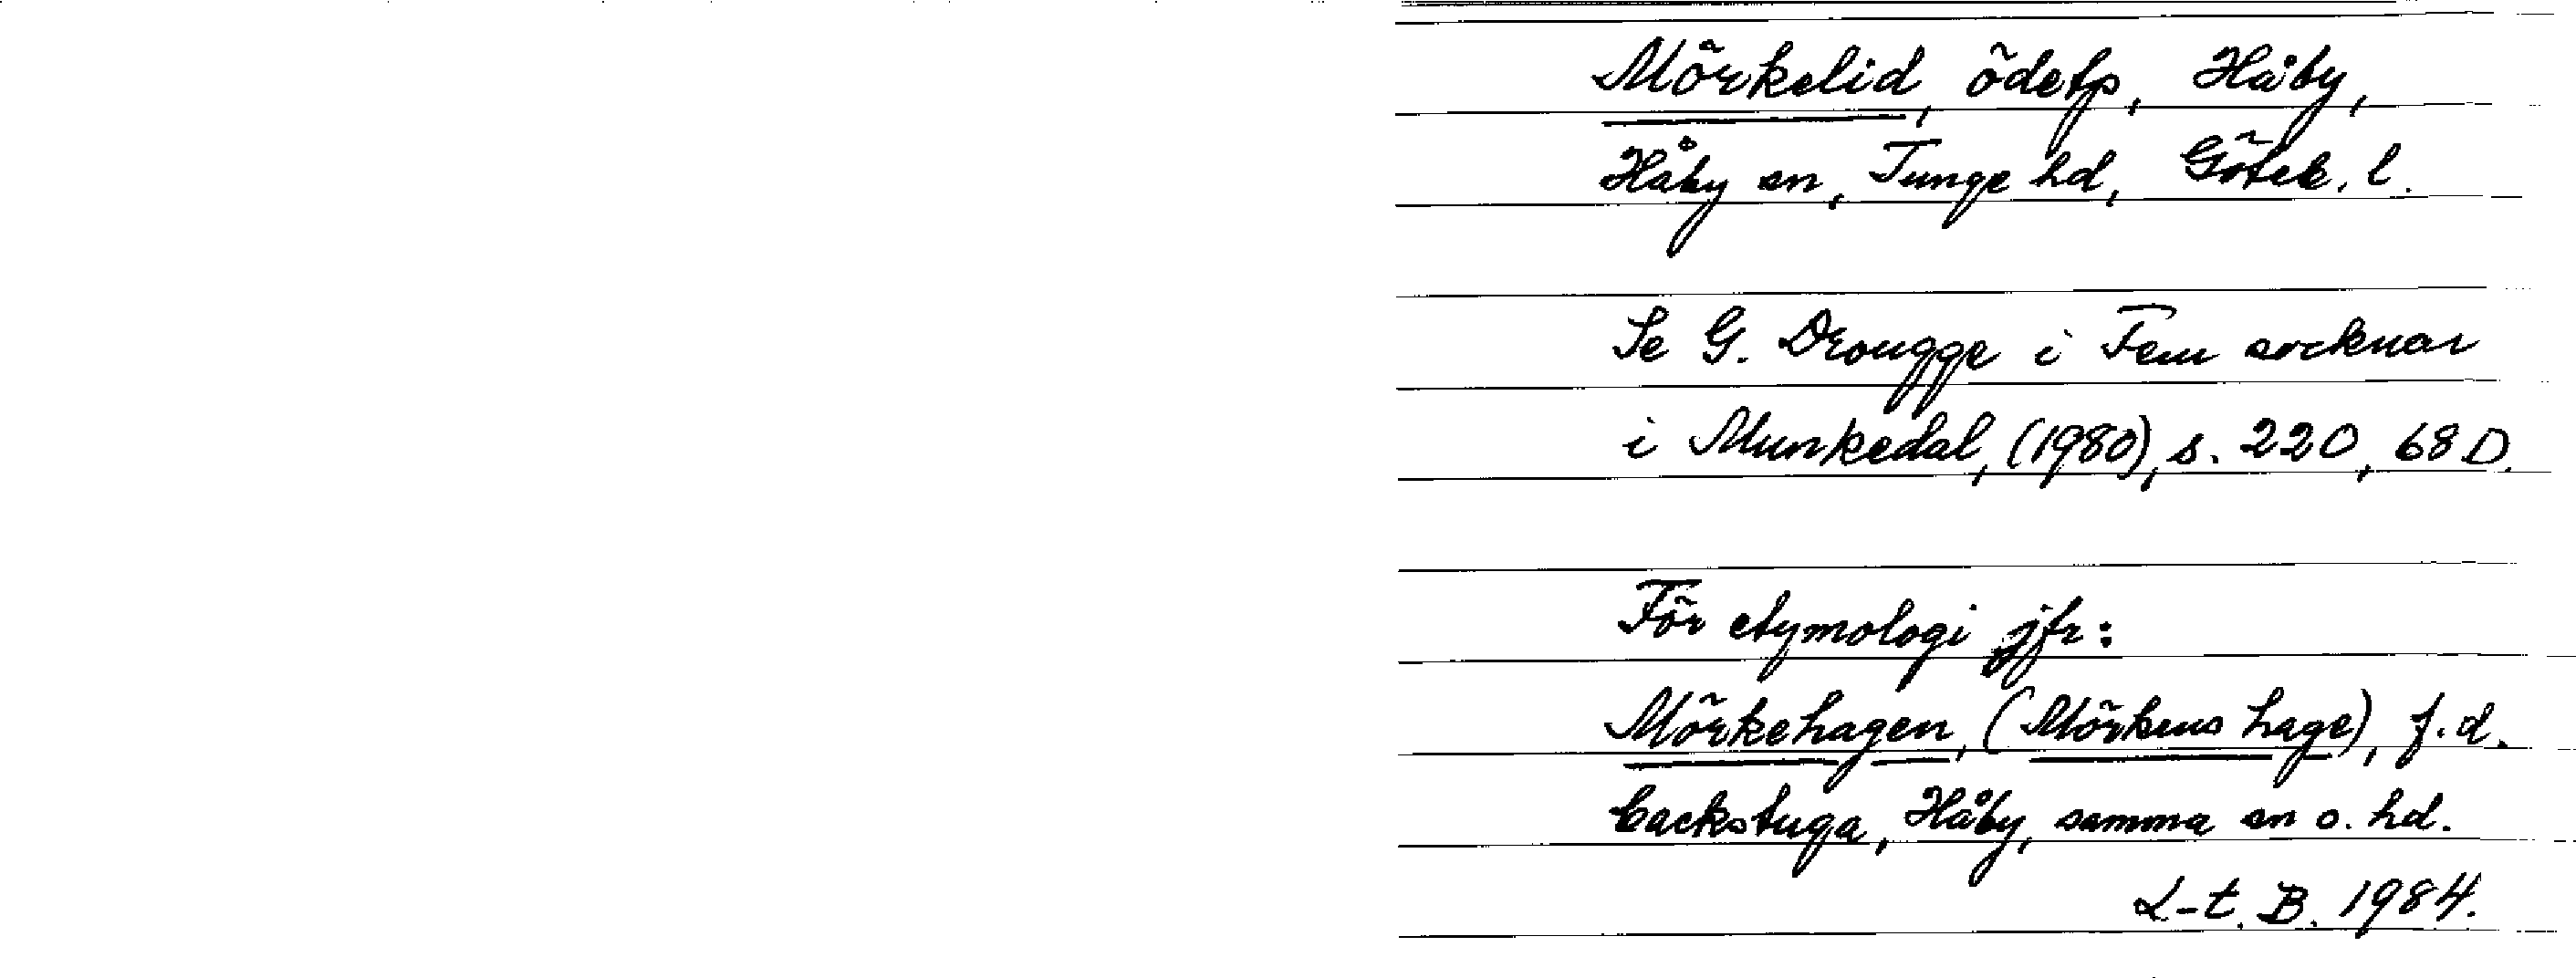 Mörkelid, ödetp, Håby,
Håby sn, Tunge hd, Göteb. l.
Se G. Drougge i Fem socknar
i Munkedal, (1980), s. 220, 68 D.
För etymologi jfr:
Mörkehagen, (Mörkens hage), f.d.
backstuga, Håby, samma sn o. hd.
L-t. B. 1984.